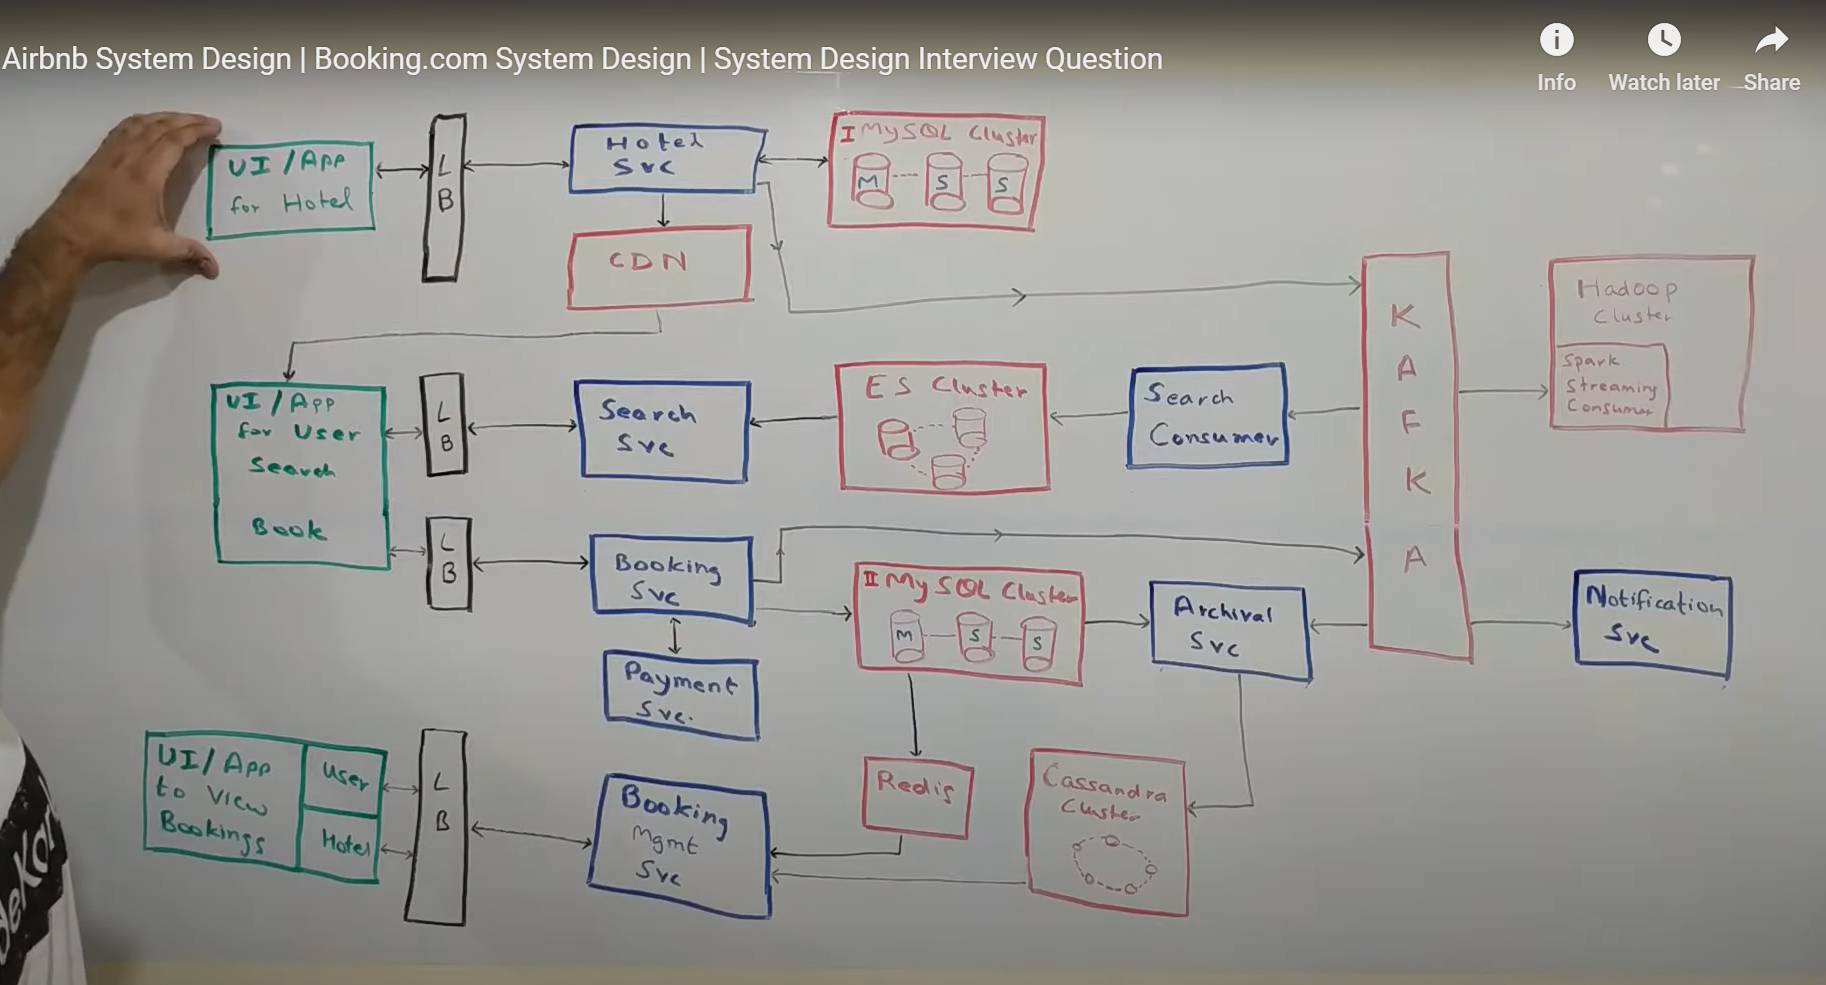 Airbnb System Design | Booking.com System Design | System Design Interview Question
Info
Watch later
Share
UI/App
for Hotel
L
B
Hotel
Svc
I MySQL Cluster
M
S
S
CDN
K
A
F
K
A
Hadoop
Cluster
Spark
Streaming
Consumer
UI/App
for User
Search
Book
L
B
Search
Svc
ES Cluster
Search
Consumer
L
B
Booking
Svc
II MySQL Cluster
M
S
S
Archival
Svc
Notification
Svc
Payment
Svc.
UI/App
to View
Bookings
User
Hotel
L
B
Booking
Mgmt
Svc
Redis
Cassandra
Cluster